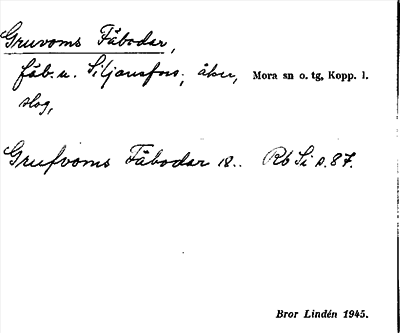 Gruvoms Fäbodar,
fäb. u. Siljansfors; åker, Mora sn o. tg, Kopp. l.
slog,
Grufvoms Fäbodar 18.. Rb Si s. 87.
Bror Lindén 1945.